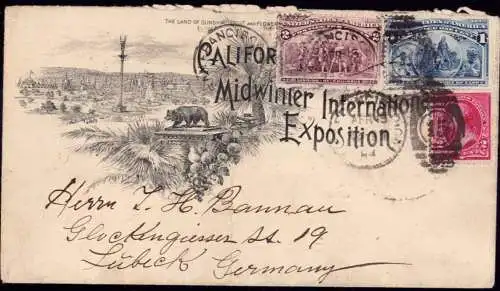 THE LAND OF SUNSHINE, FRUIT AND FLOWERS
CALIFOR
Midwinter International
Exposition
2 2
1
2
Herrn T. H. Bannau
Glockngiesser St. 19
Lübeck Germany